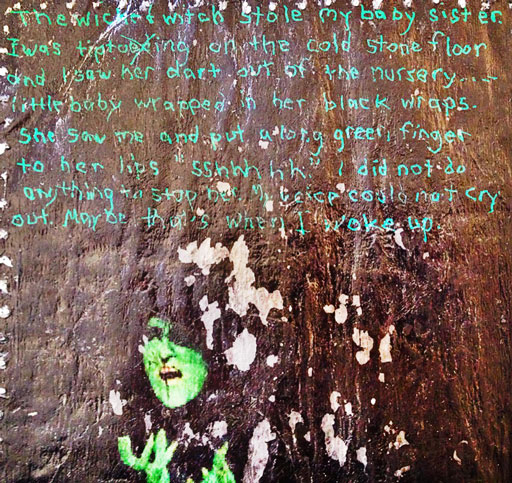 The wicked witch stole my baby sister
I was tiptoeing on the cold stone floor
and I saw her dart out of the nursery....
little baby wrapped in her black wraps.
She saw me and put a long green finger
to her lips "sshhhhh." I did not do
anything to stop her. My voice could not cry
out. Maybe that's when I woke up.